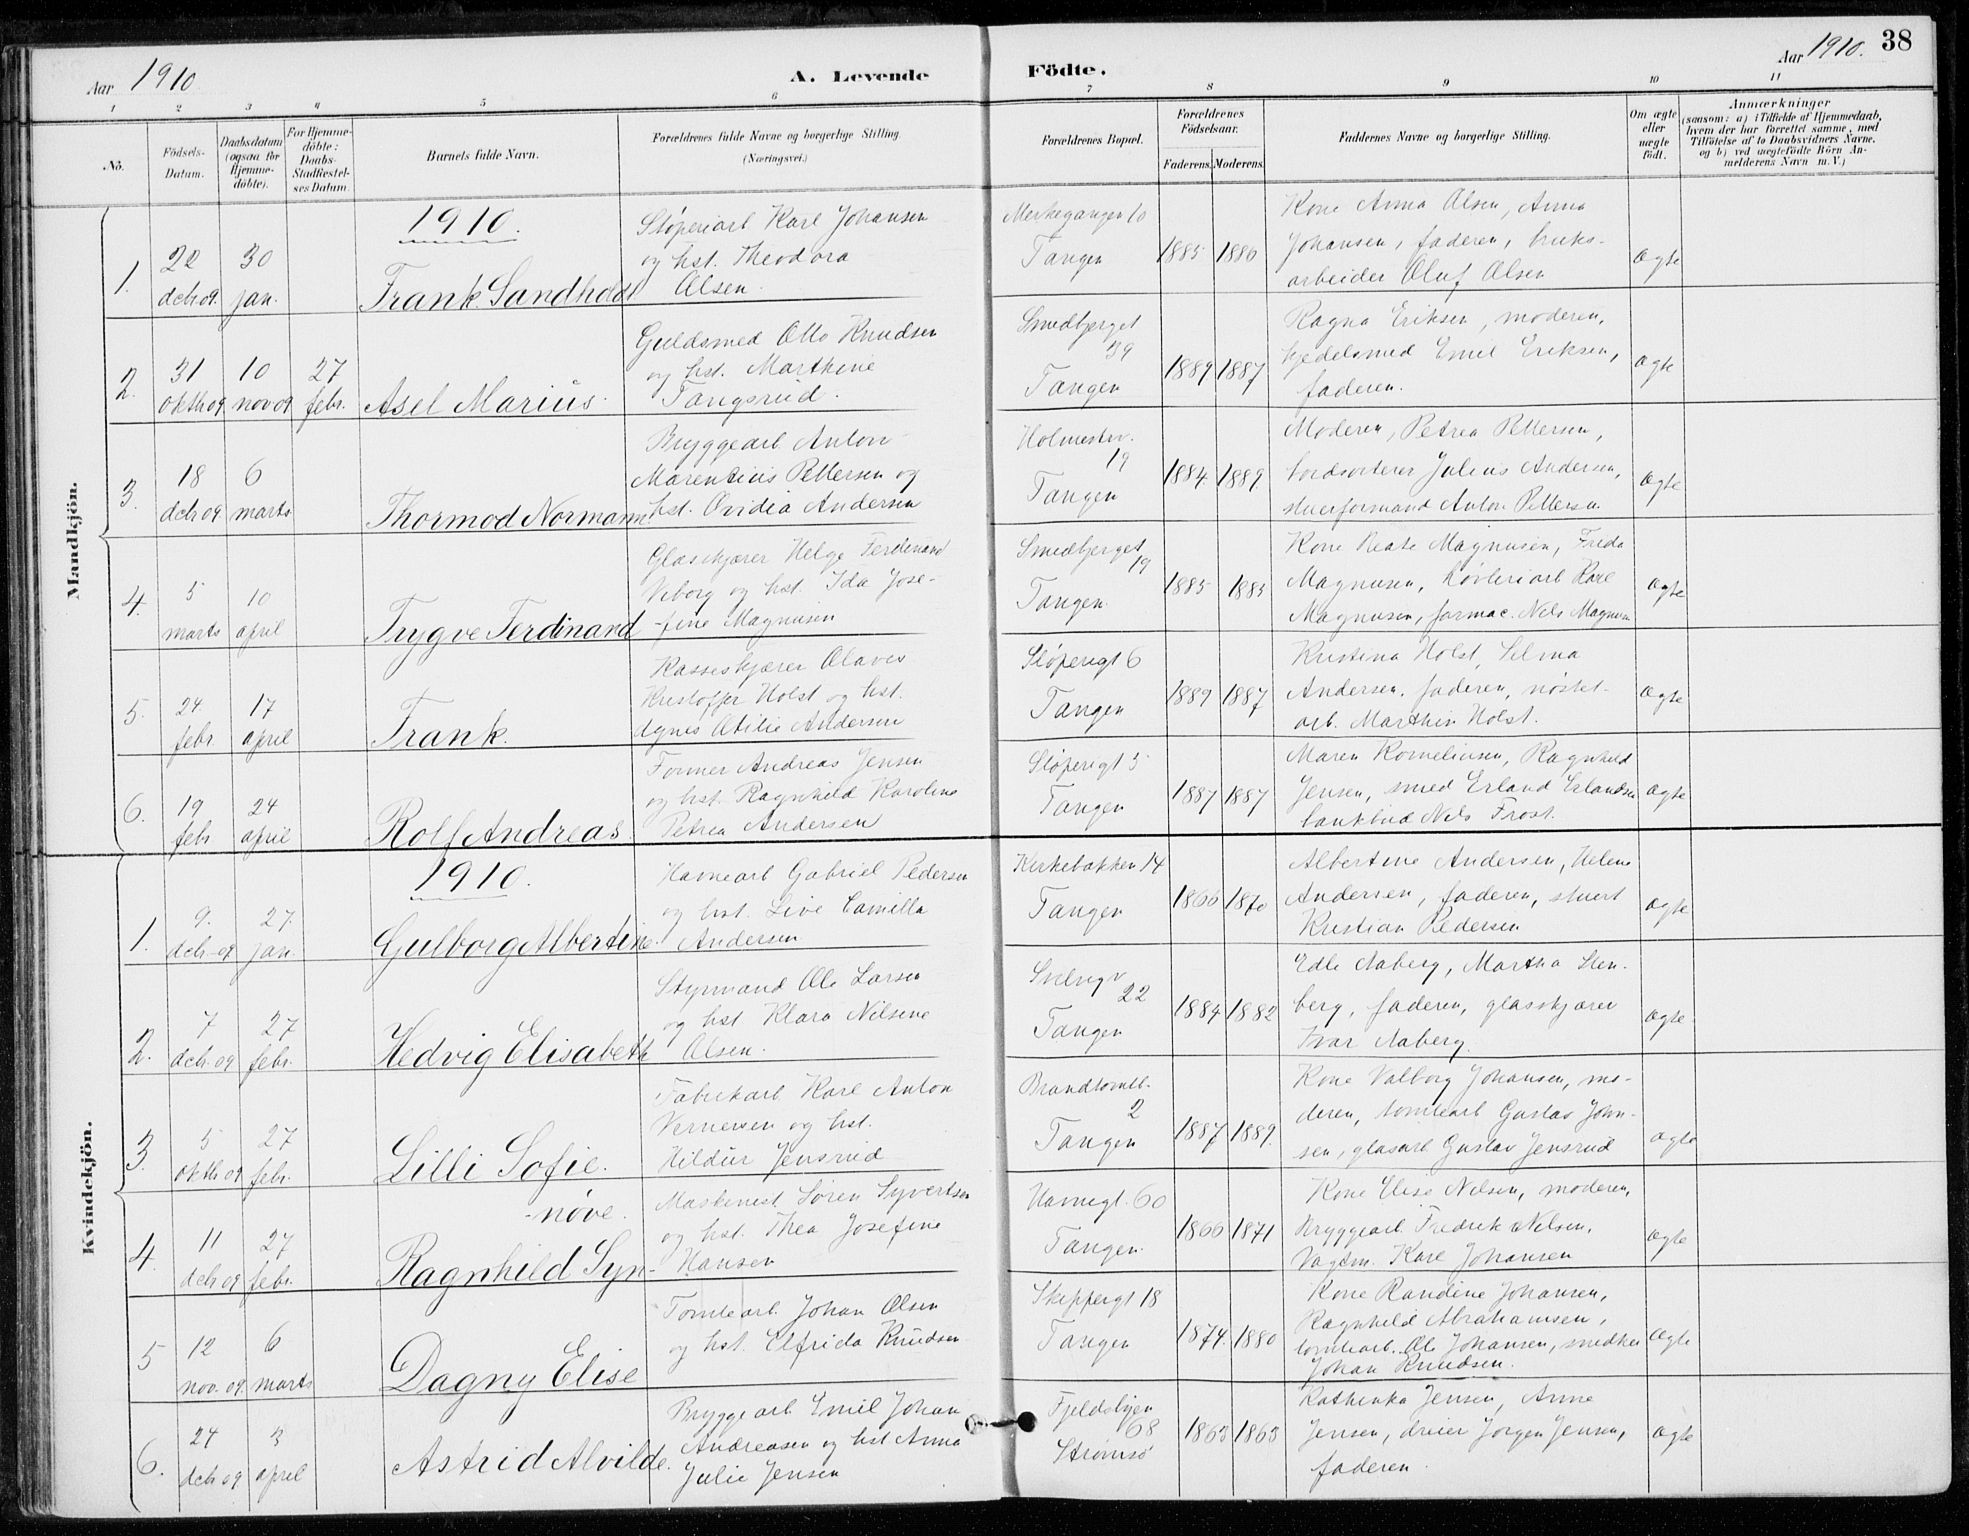 Aar 1910
A. Levende
Födte.
Aar 1910. 38
1 2 3 4 5 6 7 8 9 10 11
No.
Födsels-
Datum.
Daabsdatum
(ogsaa for
Hjemme-
döbte).
For Hjemme-
döbte:
Daabs-
Stadfæstel-
ses Datum.
Barnets fulde Navn.
Forældrenes fulde Navne og borgerlige Stilling.
(Næringsvei.)
Forældrenes Bopæl.
Forældrenes
Födselsaar.
Faderens. Moderens.
Faddernes Navne og borgerlige Stilling.
Om ægte
eller
uægte
födt.
Anmærkninger
(saasom: a) i Tilfælde af Hjemmedaab,
hvem der har forrettet samme, med
Tilföielse af to Daabsvidners Navne,
og b) ved uægtefödte Börn An-
melderens Navn m. V.)
Mandkjön.
1910.
1.
22
dcbr 09.
30
jan.
Frank Sandhold
Støperiarb Karl Johansen
og hst. Theodora
Olsen.
Merkegangen 10
Tangen
1885
1886
Kone Anna Olsen, Anna
Johansen, faderen, bruks-
arbeider Oluf Olsen
ægte
2.
31
oktbr 09
10
nov 09
27
febr.
Asel Marius.
Guldsmed Otto Knudsen
og hst. Marthine
Tangsrud.
Smedbjerget
39
Tangen
1889
1887
Ragna Eriksen, moderen,
kjedelsmed Emil Eriksen,
faderen.
ægte
3.
18
dcbr 09
6
marts
Thormod Normann
Bryggearb Anton
Marentius Pettersen og
hst. Ovidia Andersen
Holmestrv.
19
Tangen
1884
1889.
Moderen, Petrea Pettersen,
bordsorterer Julius Andersen,
stuerformand Anton Pettersen
ægte
4.
5
marts
10
april
Trygve Ferdinand
Glaskjærer Helge Ferdinand
Viborg og hst. Ida Jose-
-fine Magnusen
Smedbjerget
19
Tangen.
1885
1885
Kone Beate Magnusen, Freda
Magnusen, høvleriarb Karl
Magnusen, farmac. Nils Magnusen
ægte
5.
24
febr.
17
april
Frank.
Kasseskjærer Olaves
Kristoffer Holst og hst.
Agnes Otilie Andersen
Støperigt 6
Tangen
1889
1887
Kristina Holst, Selma
Andersen, faderen, nøstet-
arb. Marthin Holst.
ægte
6.
19
febr
24
april
Rolf Andreas.
Former Andreas Jensen
og hst. Ragnhild Karoline
Petrea Andersen
Støperigt 5
Tangen
1887
1887
Maren Korneliusen, Ragnhild
Jensen, smed Erland Erlandsen
bankbud Nils Frost.
ægte
Kvindekjön.
1910.
1.
9.
dcbr 09
27
jan.
Gulborg Albertine.
Havnearb Gabriel Pedersen
og hst. Live Camilla
Andersen
Kirkebakken 14
Tangen
1866
1870
Albertine Andersen, Helene
Andersen, faderen, stuert
Kristian Pedersen
ægte
2.
7
dcbr. 09
27
febr.
Hedvig Elisabeth
Styrmand Ole Larsen
og hst Klara Nilsine
Olsen.
Svelvigv
22
Tangen
1884
1882
Edle Aaberg, Martha Sten-
berg, faderen, glasskjærer
Ivar Aaberg.
ægte.
3.
5
oktbr 09
27
febr.
Lilli Sofie.
Fabrikarb Karl Anton
Vernersen og hst.
Hildur Jensrud
Brandtomtb.
2
Tangen
1887
1889.
Kone Valborg Johansen, mo-
deren, tomtearb Gustav John-
sen, glasarb Gustav Jensrud
ægte
4.
11
dcbr 09
27
febr.
-nøve.
Ragnhild Syn-
Maskinist Søren Syvertsen
og hst. Thea Josefine
Hansen
Havnegt. 60
Tangen.
1866
1871
Kone Elise Nilsen, moderen,
Bryggearb Fredrik Nilsen,
Vagtm. Karl Johansen
ægte
5
12
nov. 09.
6
marts
Dagny Elise
Tomtearb. Johan Olsen
og hst. Elfrida Knudsen
Skippergt 18
Tangen
1874.
1880
Kone Randine Johansen,
Ragnhild Abrahamsen,
tomtearb. Ole Johansen, snedker
Johan Knudsen.
ægte
6.
24
dcbr 09
3
april
Astrid Alvilde.
Bryggearb Emil Johan
Andreasen og hst Anna
Julie Jensen
Fjeldsbyen
68
Strømsö
1863
1863
Kathinka Jensen, Anne
Jensen, dreier Jørgen Jensen,
faderen.
ægte